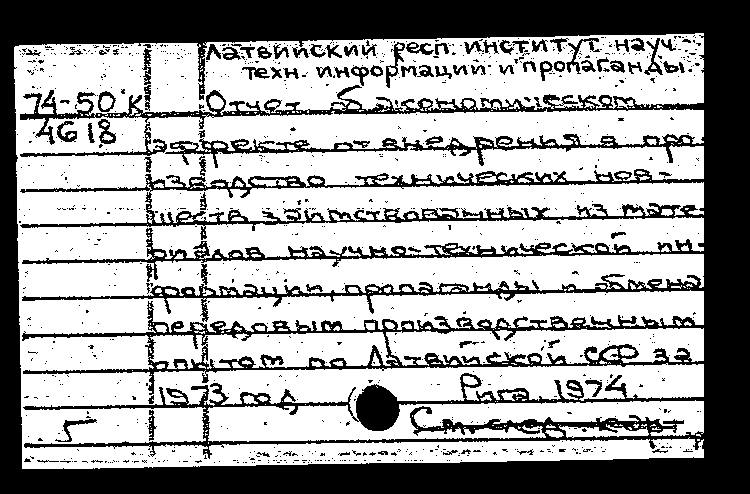 Латвийский респ. институт науч-
техн. информации и пропаганды.
74-50 К Отчет об экономическом
4618 эффекте от внедрения в про-
изводство технических нов-
шеств, заимствованных из мате-
риалов научно-технической ин-
формации, пропаганды и обмена
передовым производственным
опытом по Латвийской ССР за
1973 год Рига, 1974.
5 См. след. карт.